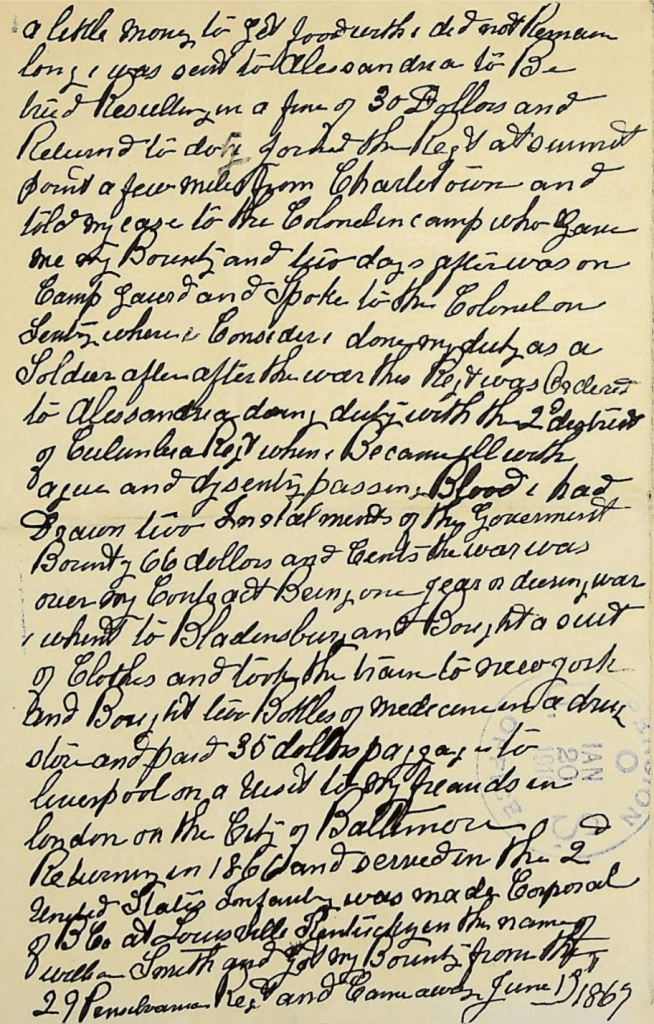 a little money to get food with i did not Remain
long i was sent to Alessandria to Be
tried Resulting in a fine of 30 Dollars and
Returnd to duty joined the Regt at summit
point a few miles from Charlestown and
told my case to the Colonel in camp who gave
me my Bounty and two days after was on
Camp gaurd and Spoke to the Colonel on
Sentry where i Consider i done my duty as a
Soldier after after the war this Regt was Ordered
to Alessandria doing duty with the 2d district
of Culumbia Regt when i Became ill with
ague and dysentry passing Blood i had
Drawn two Instalments of the Goverment
Bounty 66 dollors and Cents the war was
over my Contract Being one year or during war
i whent to Bladensburg and Bought a suit
of Clothes and took the train to new york
and Bought two Bottles of medecine in a drug
store and paid 35 dollors passage to
liverpool on a visit to my freands in
london on the City of Baltimore
Returning in 1866 and served in the 2d
United States Infantry was made Corporal
of B Co at Louisville Kentucky in the name of
william Smith and got my Bounty from the
29 Pensilvania Regt and Came away June 13th 1869
PENSION OFFICE
JAN 20